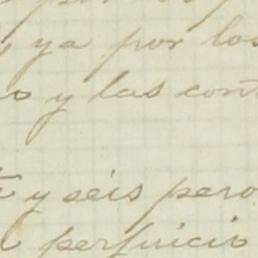 ya por los
o y las cont
y seis pero
perjuicio